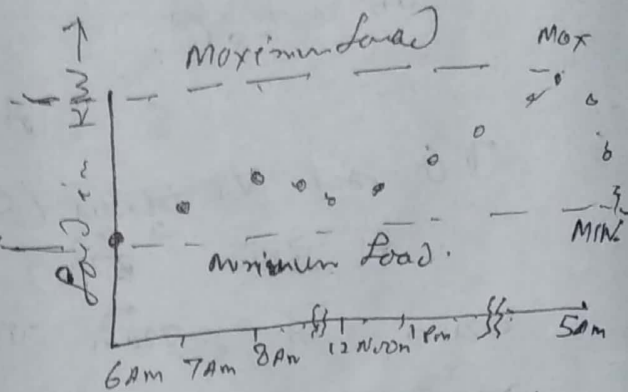 Moximum Load
MOX
Load in KW →
Minimum Load.
MIN.
6 Am 7 Am 8 Am 12 Noon 1 Pm 5 Am